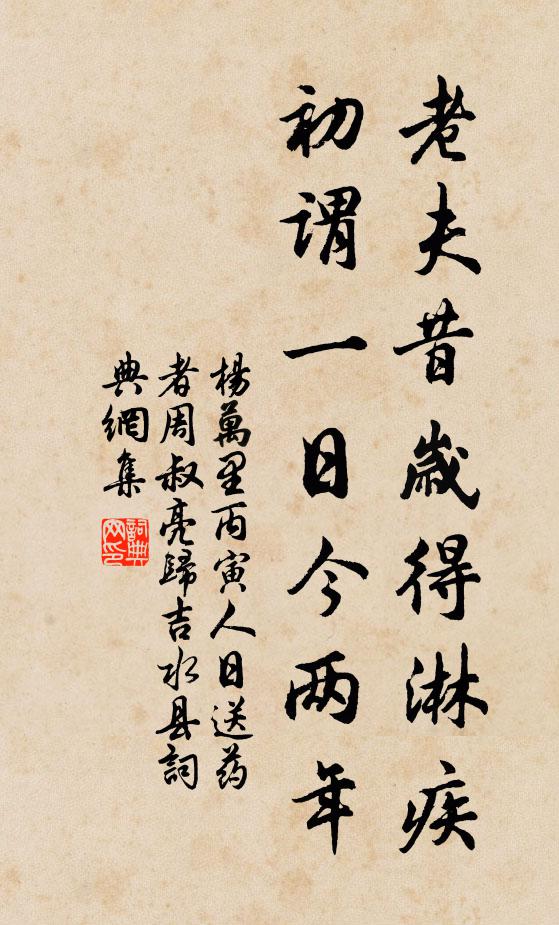 老夫昔歲得淋疾
初謂一日今两年
楊萬里丙寅人日送药
者周叔亮歸吉水县詞
典網集
詞典
网印